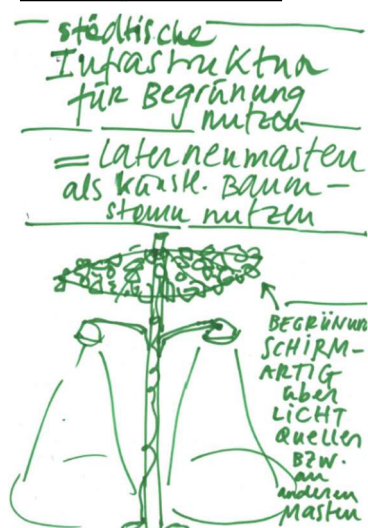 städtische
Infrastruktur
für Begrünung
nutzen
= Laternenmasten
als künstl. Baum-
stamm nutzen
BEGRÜNUNG
SCHIRM-
ARTIG
über
LICHT
Quellen
BZW.
an
anderen
Masten